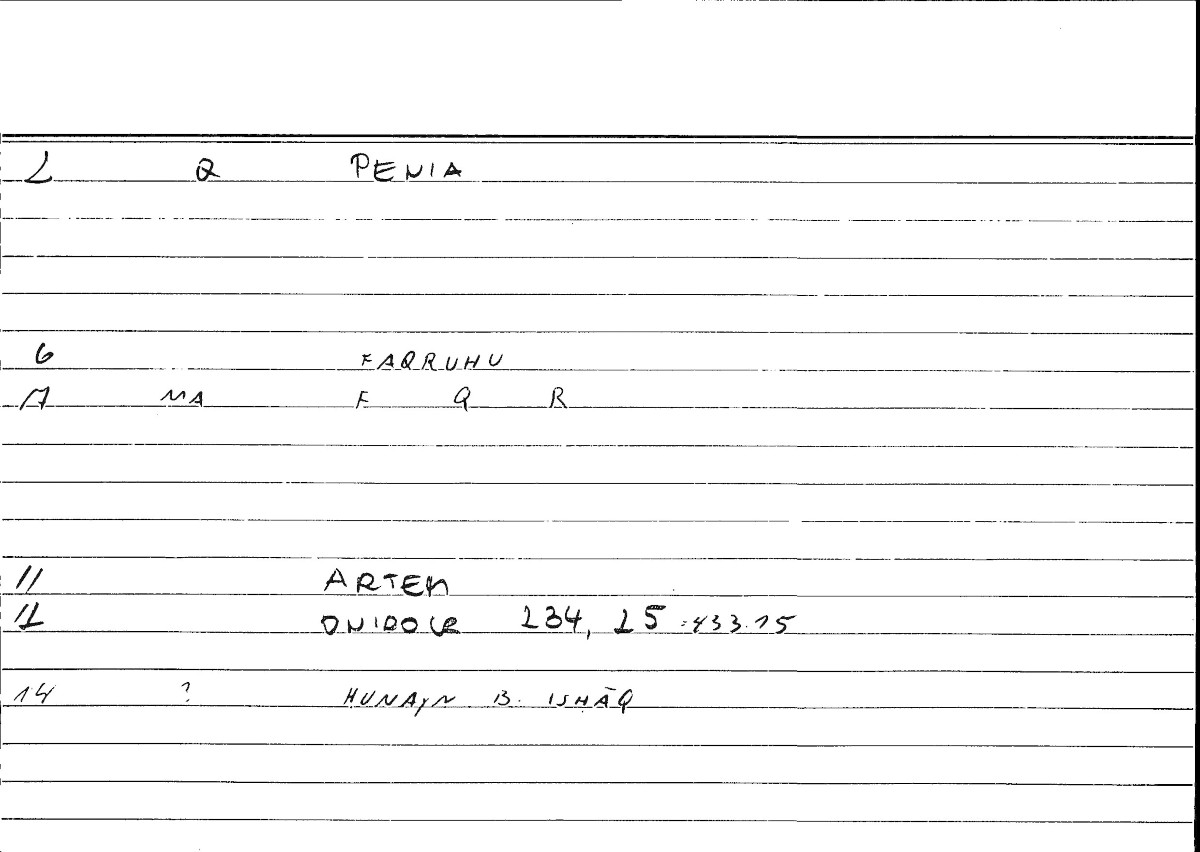 2 Q PENIA
6 FAQRUHU
7 MA F Q R
11 ARTEM
12 234, 25 = 433.15
14 ? HUNAYN B. ISHĀQ